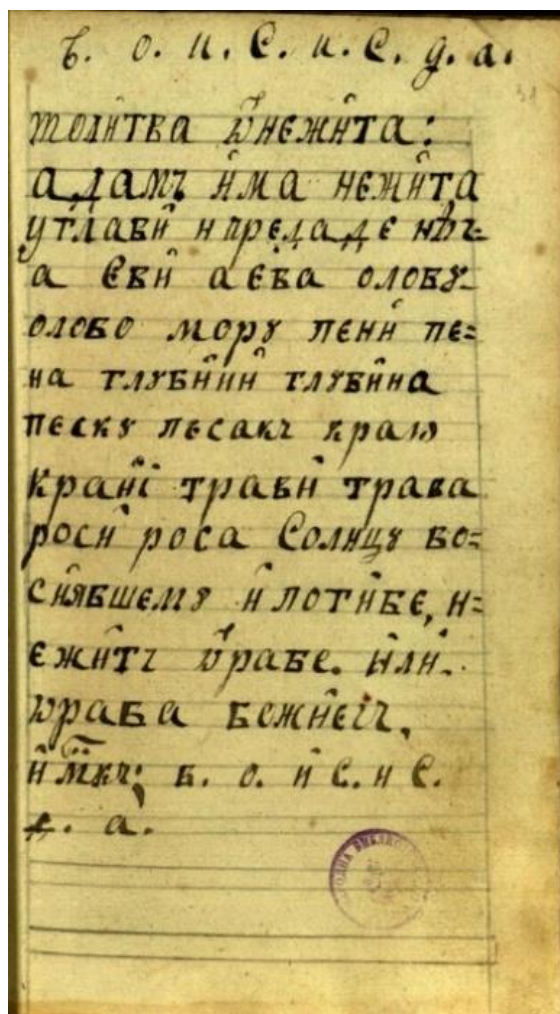 в. о. и. С. и. С. д. а.
молитва ѿнежита:
адамъ има нежита
углави и предаде нѣг-
а Еви а ева оловꙋ
олово морꙋ пени пе=
на глꙋбини глꙋбина
пескꙋ песакъ краю
краи трави трава
роси роса Солнцꙋ во=
сиявшемꙋ и погибе, н=
ежитъ ѿрабе. или.
ѿраба божиегъ.
имкъ: в. о. и С. и С.
д. а.